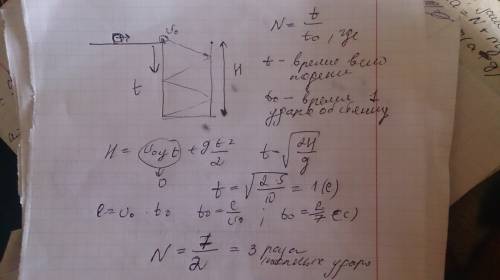 N = t/t₀, где
v₀
t - время всего падения
t
H
t₀ - время 1 удара об стенку
H = v₀y t + gt²/2  t = √(2H/g)
0
t = √(2·5/10) = 1 (с)
l = v₀ · t₀  t₀ = l/v₀ ; t₀ = l/7 (с)
N = 7/2 = 3 раза
ударов